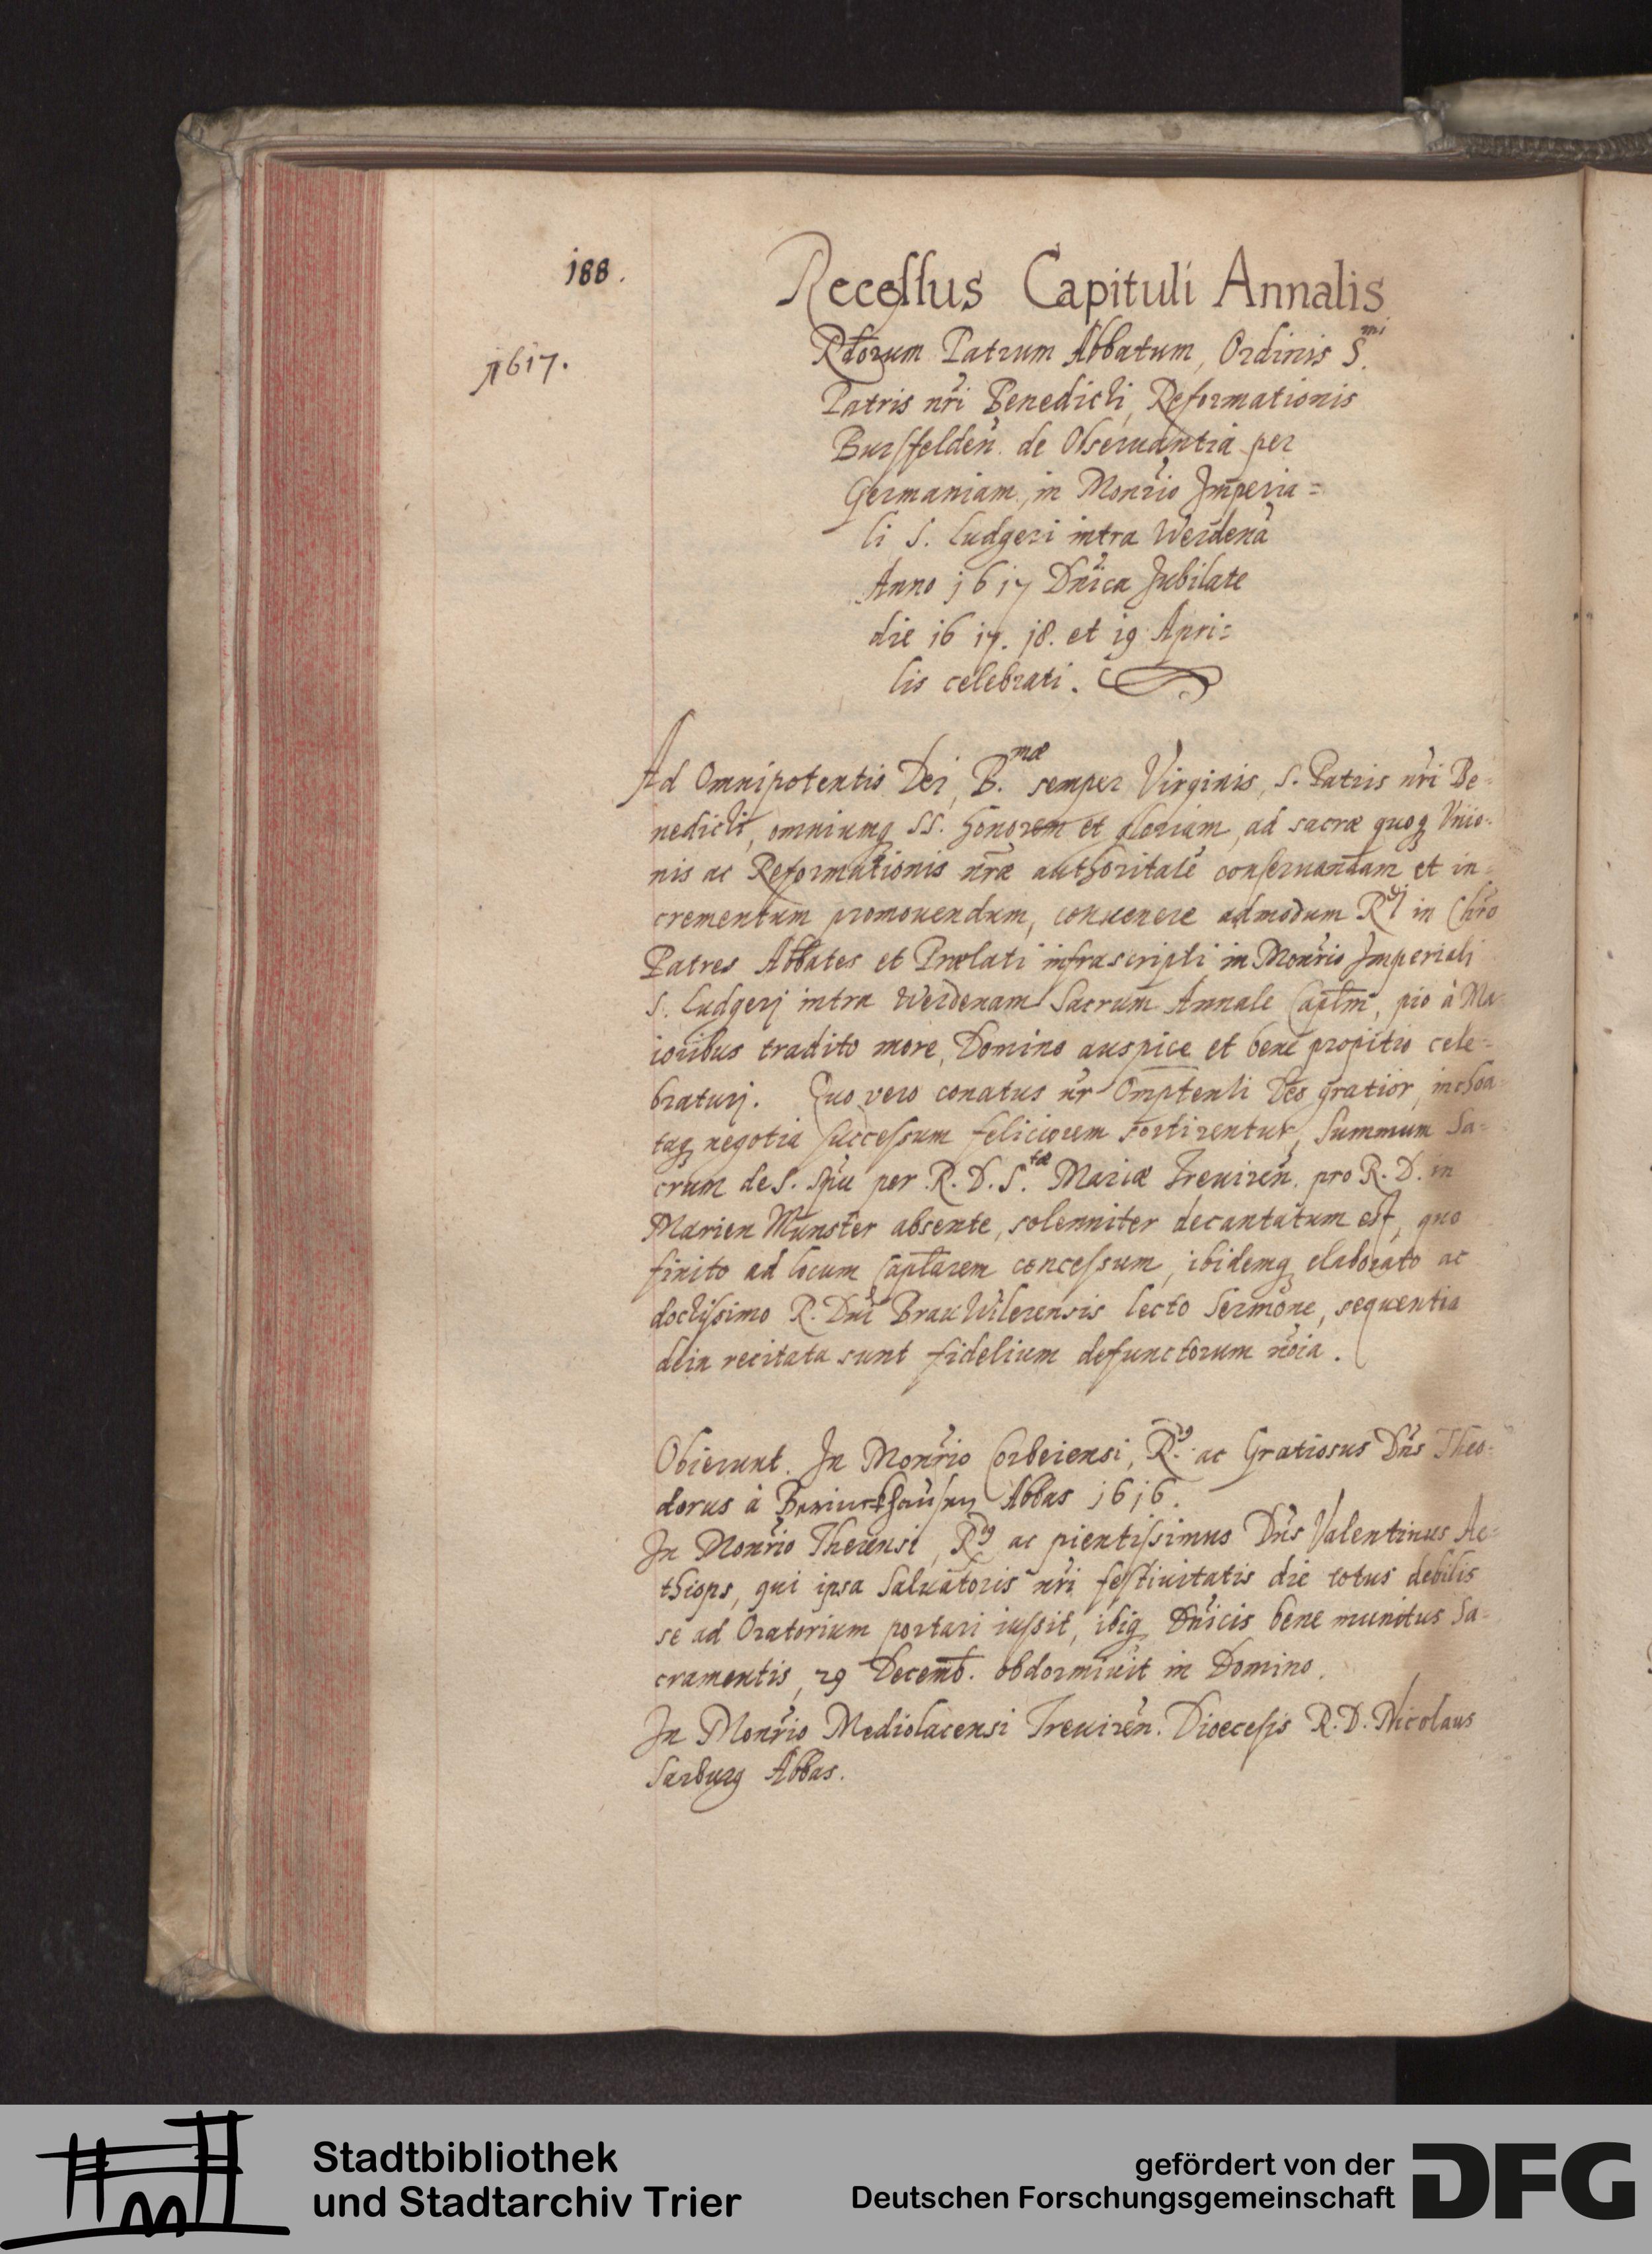 188.
Recessus Capituli Annalis
1617.
Rdorum Patrum Abbatum, Ordinis S.mi
Patris nri Benedicti, Reformationis
Bursfelden. de Obseruantia per
Germaniam, in Monrio Imperia=
li S. Ludgeri intra Werdena
Anno 1617 Dnica Jubilate
die 16 17. 18. et 19 Apri=
lis celebrati.
Ad Omnipotentis Dei, B.mæ semper Virginis, S. Patris nri Be=
nedicti, omniumq SS. honorem et gloriam, ad sacræ quoq Vnio=
nis ac Reformationis nræ authoritate conseruandam et in=
crementum promouendum, conuenere admodum Rdj in Chro
Patres Abbates et Prælati infrascripti in Monrio Imperiali
S. Ludgerj intra Werdenam Sacrum Annale Captm, pio à Ma=
ioribus tradito more, Domino auspice et bene propitio cele=
braturj. Quo vero conatus nr Omptenti Deo gratior, inchoa=
taq negotia successum feliciorem sortirentur, Summum Sa=
crum de S. Spu per R. D. S.tæ Mariæ Treuiren. pro R. D. in
Marien Munster absente, solenniter decantatum est, quo
finito ad locum Captarem concessum, ibidemq elaborato ac
doctissimo R. Dni BrauWilerensis lecto Sermone, sequentia
dein recitata sunt fidelium defunctorum noia.
Obierunt. In Monrio Corbeiensi, R.dg ac Gratiosus Dns Theo=
dorus à Beringkhausen Abbas 1616.
In Monrio Therensi, Rdg ac pientissimus Dns Valentinus Ae=
thiops, qui ipsa Saluatoris nri festiuitatis die totus debilis
se ad Oratorium portari iussit, ibiq Dnicis bene munitus Sa=
cramentis, 29 Decemb. obdormiuit in Domino.
In Monrio Mediolacensi Treuiren. Dioecesis R. D. Nicolaus
Sarburg Abbas.
Stadtbibliothek
und Stadtarchiv Trier
gefördert von der
Deutschen Forschungsgemeinschaft
DFG